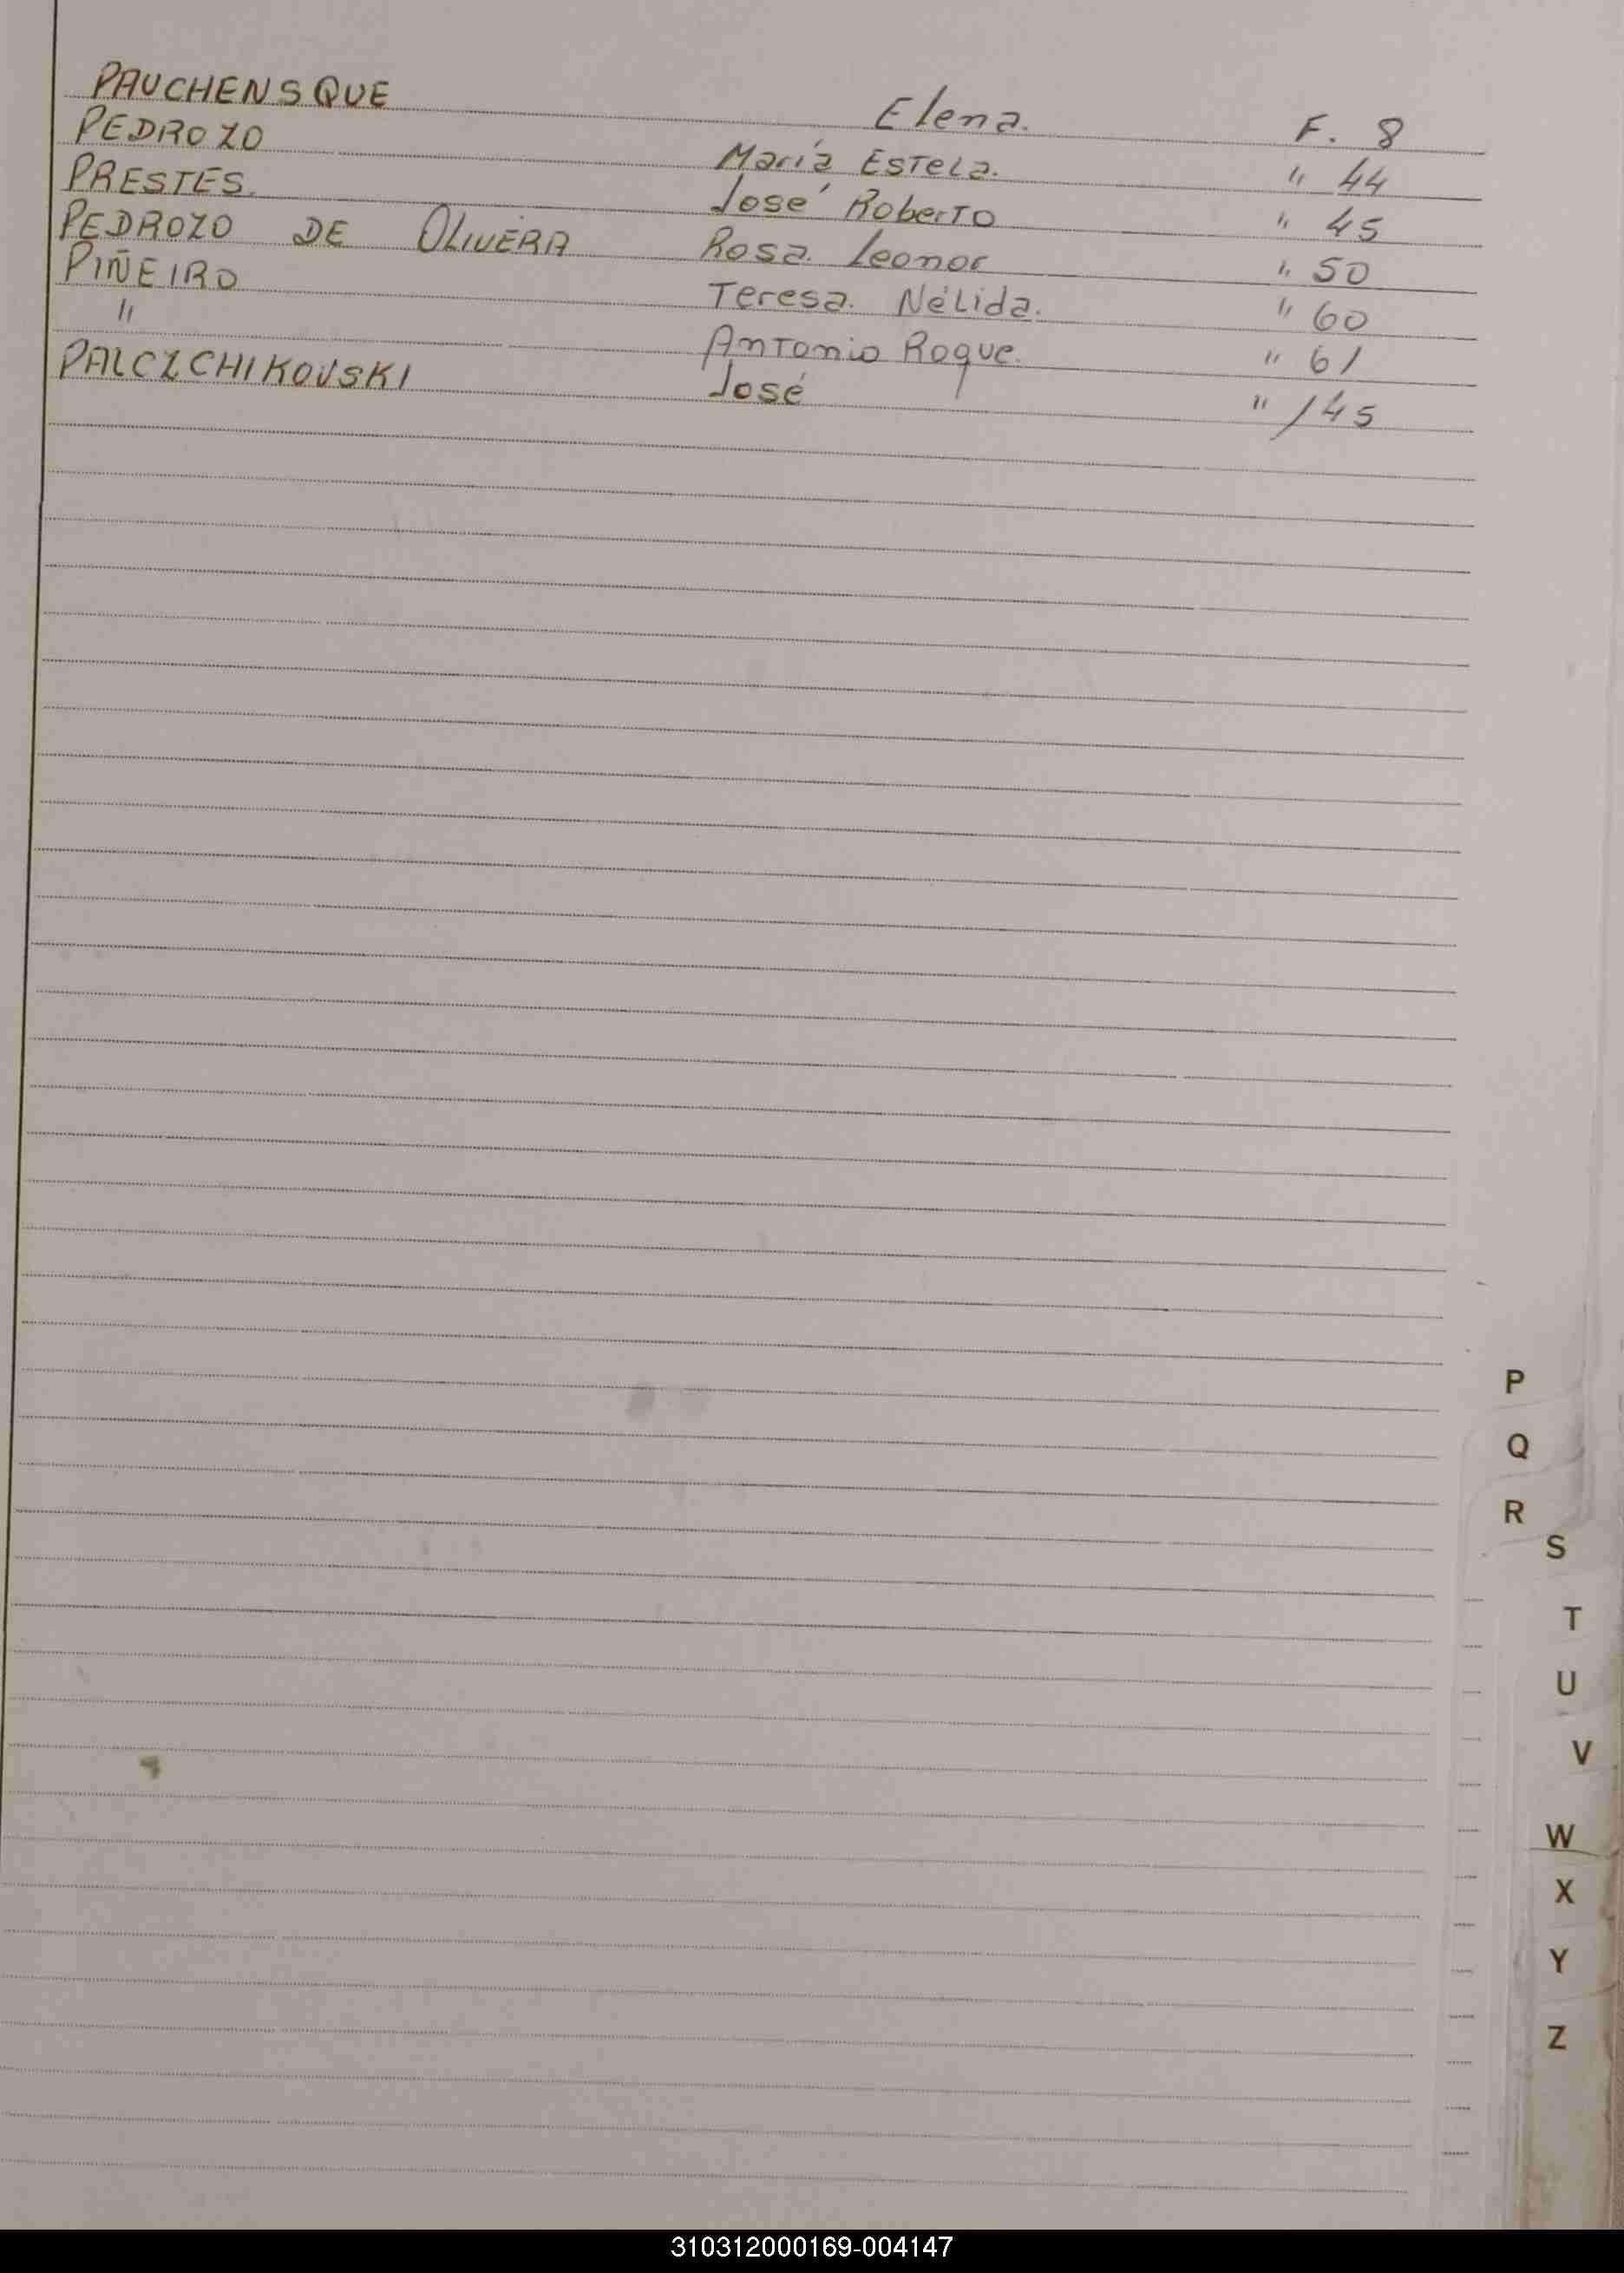 PAUCHENSQUE Elena. F. 8
PEDROZO María Estela. " 44
PRESTES. José Roberto " 45
PEDROZO DE OLIVERA Rosa Leonor " 50
PIÑEIRO Teresa Nélida. " 60
" Antonio Roque. " 61
PALCZCHIKOVSKI José " 145
P
Q
R
S
T
U
V
W
X
Y
Z
310312000169-004147